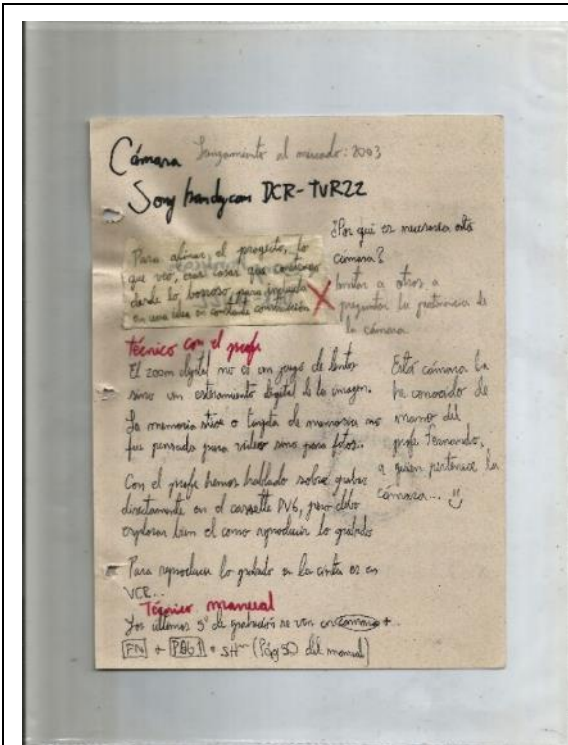 Cámara Lanzamiento al mercado: 2003
Sony handycam DCR-TVR22
Para afinar el proyecto, lo
que veo, esas cosas que construyo
desde lo borroso, para incluirla
en una idea en constante construcción
¿Por qué es necesaria esta
cámara?
Invitar a otros a
preguntar la pertinencia de
la cámara
técnico con el profe
El zoom digital no es un juego de lentes
sino un estiramiento digital de la imagen.
La memoria stick o tarjeta de memoria no
fue pensada para video sino para fotos.
Con el profe hemos hablado sobre grabar
directamente en el cassette DV6, pero debo
explorar bien el como reproducir lo grabado
Para reproducir lo grabado en la cinta es en
VCR...
Esta cámara la
he conocido de
mano del
profe Fernando,
a quien pertenece la
cámara...
Técnico manual
Los últimos 5" de grabación se ven en cámara +
FN + PÁG 1 + (Pág 50 del manual)